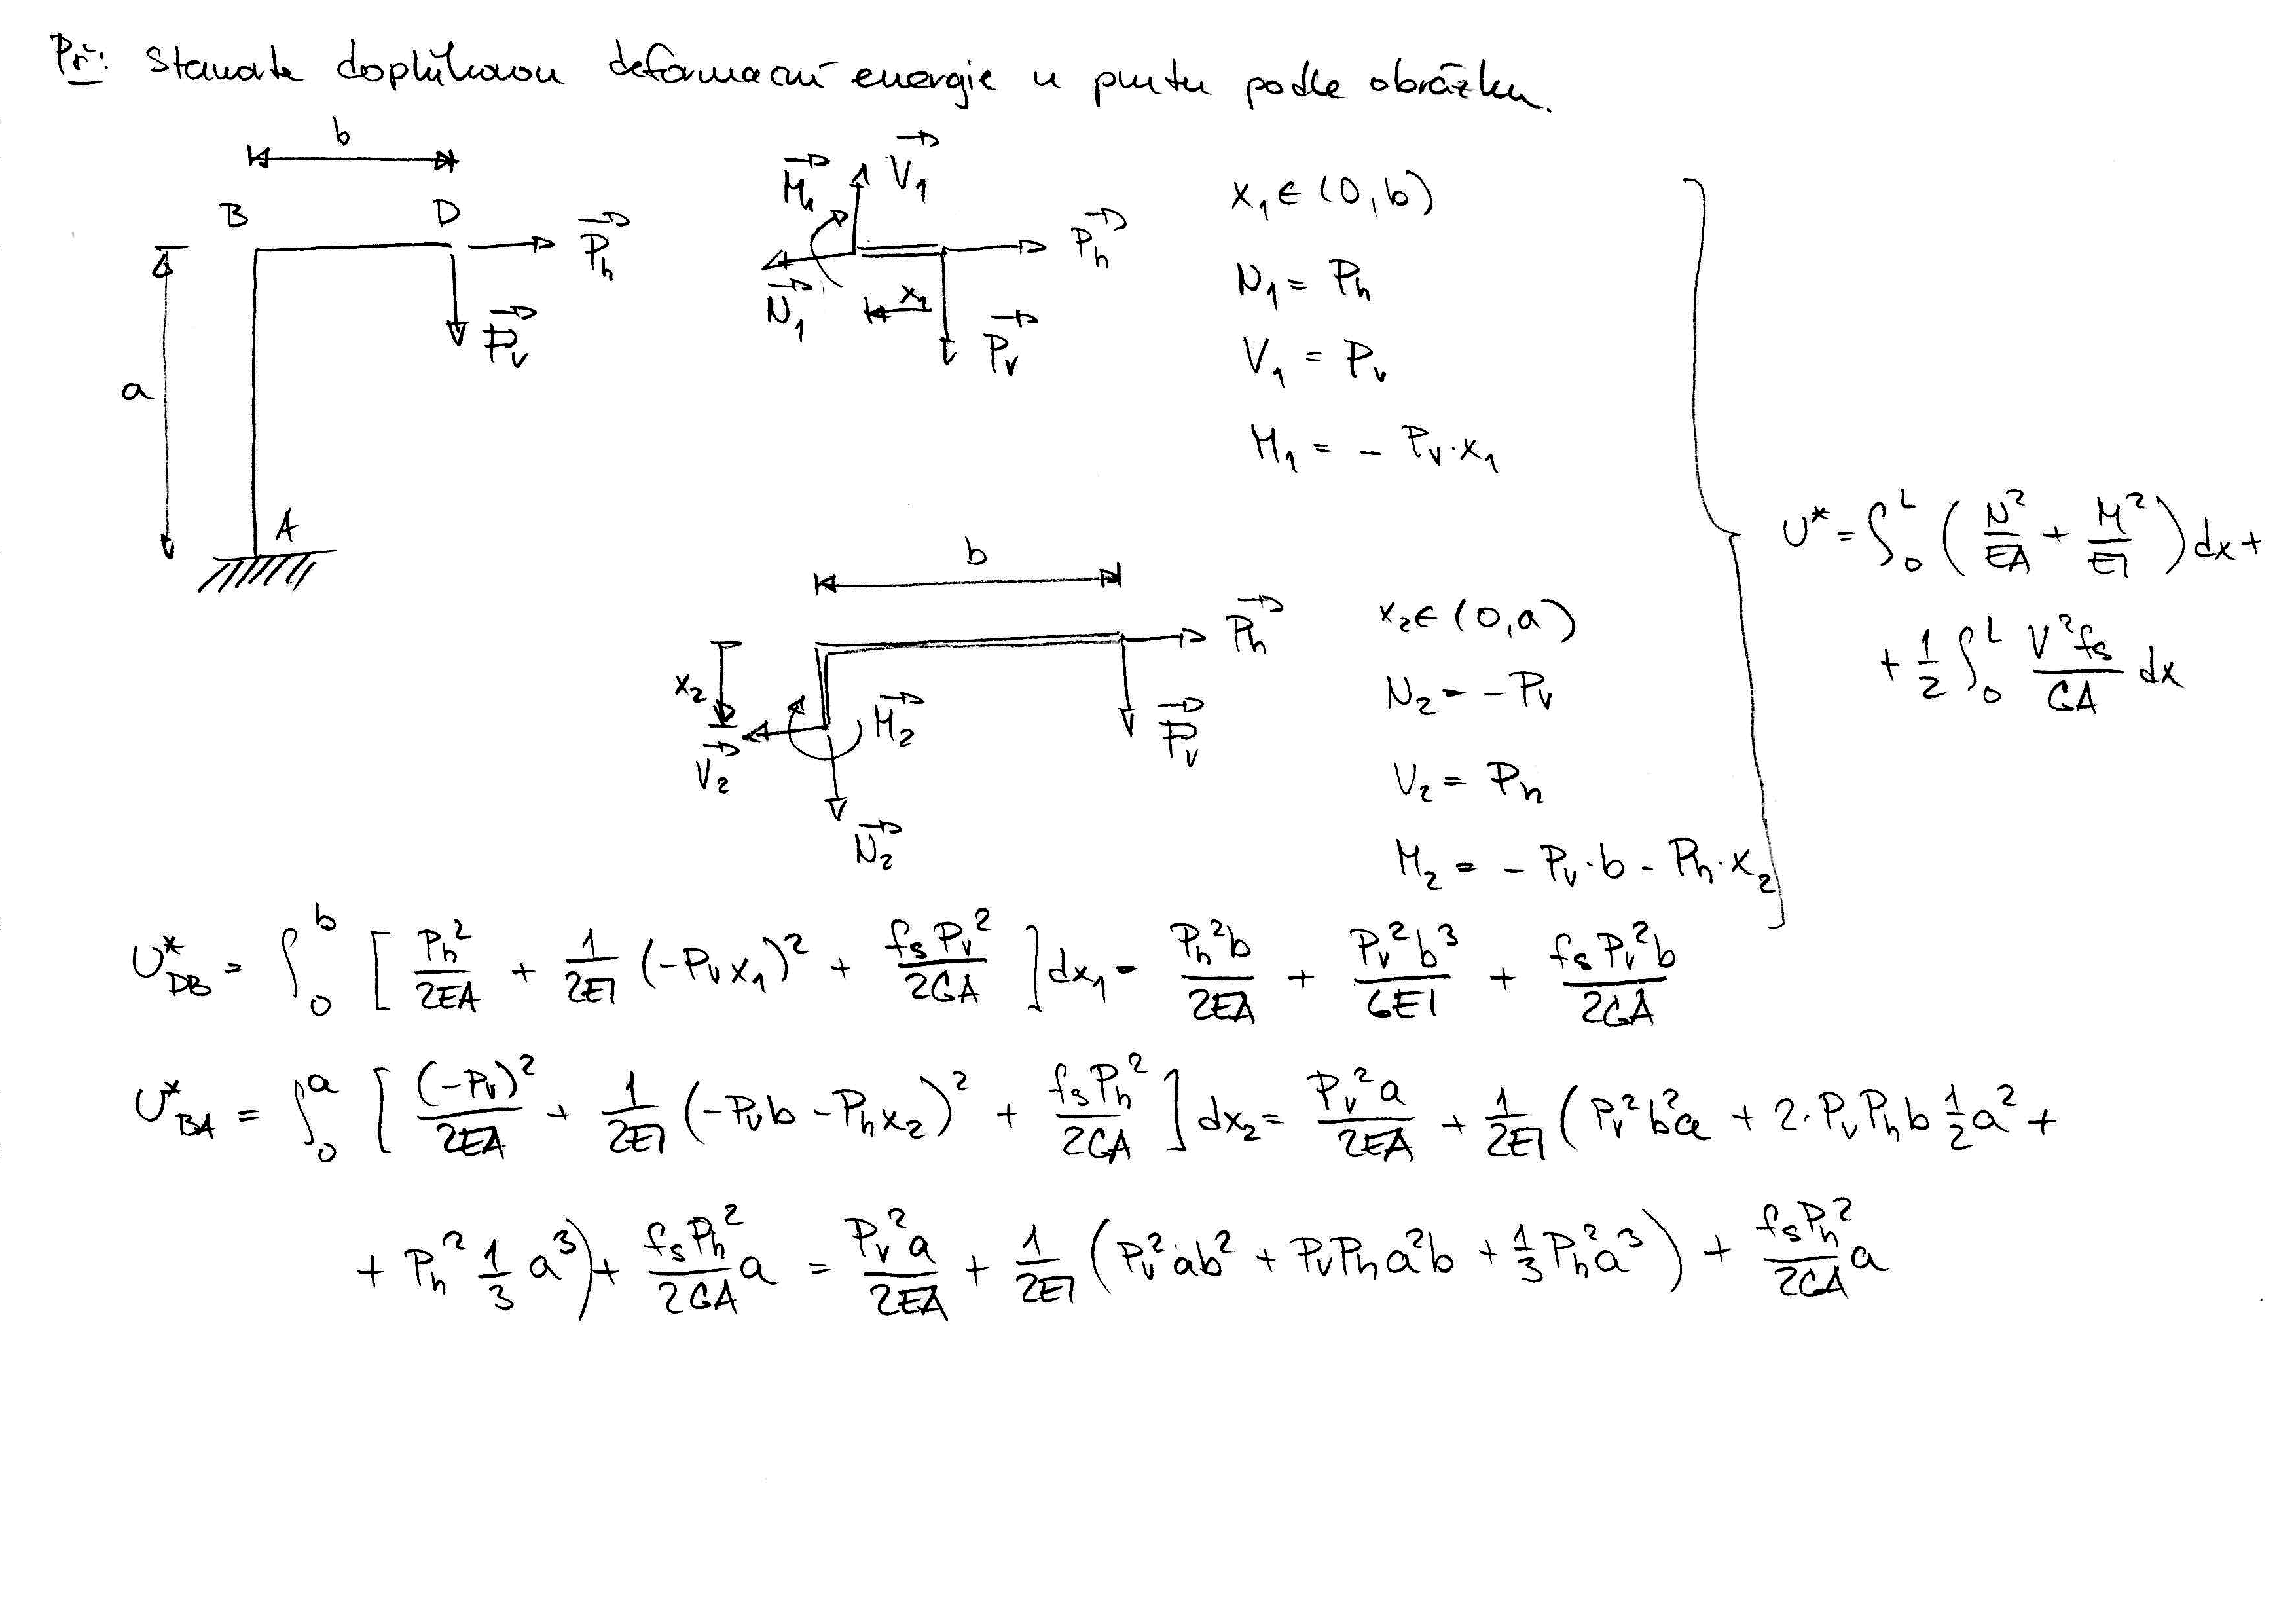 Př: Stanovte doplňkovou deformační energie u prutu podle obrázku.
b
B D
P⃗h
P⃗v
a
A
M⃗1 V⃗1
P⃗h
N⃗1 x1
P⃗v
x1 ∈ (0,b)
N1 = Ph
V1 = Pv
M1 = - Pv·x1
b
P⃗h
x2
M⃗2
P⃗v
V⃗2
N⃗2
x2 ∈ (0,a)
N2 = -Pv
V2 = Ph
M2 = - Pv·b - Ph·x2
U* = ∫₀ᴸ (N²/EA + M²/EI) dx +
+ 1/2 ∫₀ᴸ V²fs/GA dx
U*DB = ∫₀ᵇ [Ph²/2EA + 1/2EI (-Pv x1)² + fs Pv²/2GA] dx1 = Ph²b/2EA + Pv²b³/6EI + fs Pv²b/2GA
U*BA = ∫₀ᵃ [(-Pv)²/2EA + 1/2EI (-Pv b - Ph x2)² + fs Ph²/2GA] dx2 = Pv²a/2EA + 1/2EI (Pv²b²a + 2·Pv Ph b 1/2 a² +
+ Ph² 1/3 a³) + fs Ph²/2GA a = Pv²a/2EA + 1/2EI (Pv²ab² + Pv Ph a²b + 1/3 Ph²a³) + fs Ph²/2GA a